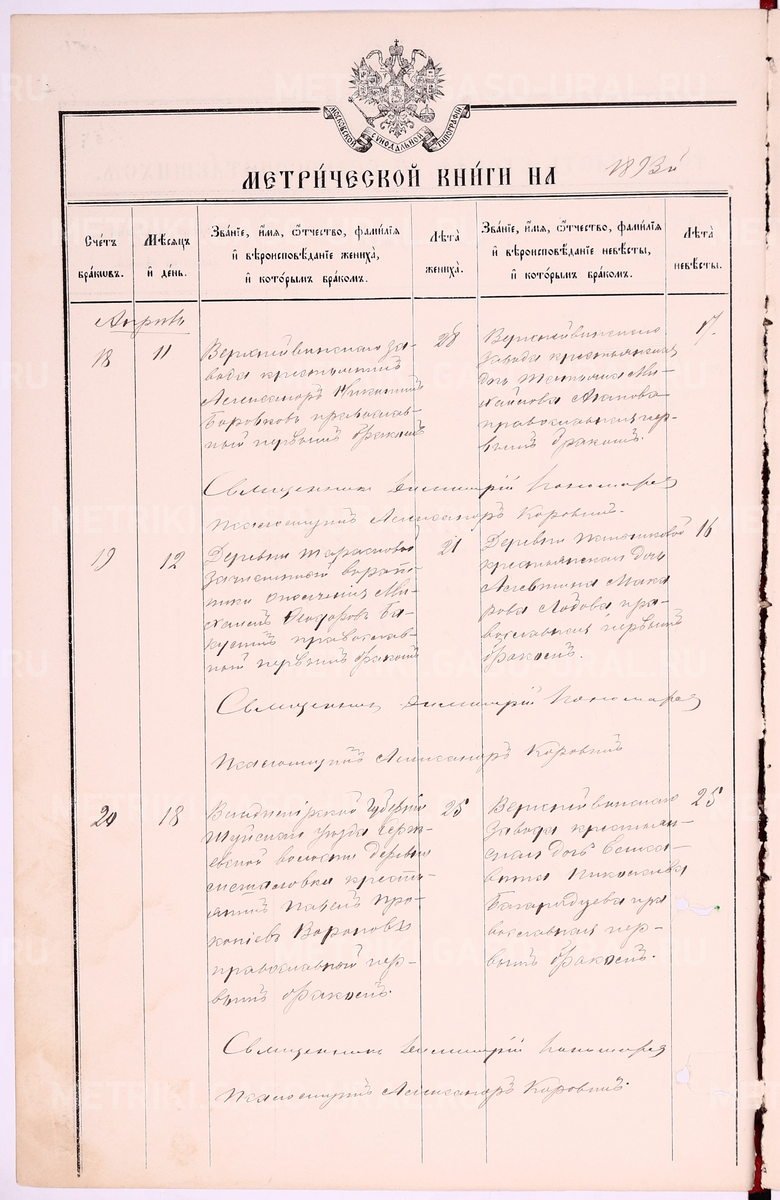 МОСКОВСКОЙ СѴНОДАЛЬНОЙ ТИПОГРАФІИ
МЕТРИ́ЧЕСКОЙ КНИ́ГИ НА 1893й
Сче́тъ бра́ковъ.
Мѣ́сяцъ и де́нь.
Зва́нїе, и҆́мя, ѻ҆́тчество, фами́лїя и҆ вѣроисповѣ́данїе жениха̀, и҆ кото́рымъ бра́комъ.
Лѣ́та жениха̀.
Зва́нїе, и҆́мя, ѻ҆́тчество, фами́лїя и҆ вѣроисповѣ́данїе невѣ́сты, и҆ кото́рымъ бра́комъ.
Лѣ́та невѣ́сты.
Апрѣль
18
11
Верхнейвинскаго за-
вода крестьянинъ
Александръ Никитинъ
Боровковъ православ-
ный первымъ бракомъ
28
Верхнейвинскаго
завода крестьянская
дочь Татьяна Ми-
хайлова
православная пер-
вымъ бракомъ.
17.
Священникъ Димитрій Пономаревъ
Псаломщикъ Александръ Коровинъ.
19
12
Деревни Тарасковой
Ми-
хаилъ Ѳедоровъ Ба-
православ-
ный первымъ бракомъ
21
Деревни
крестьянская дочь
Мака
рова пра-
вославная первымъ
бракомъ.
16
Священникъ Димитрій Пономаревъ
Псаломщикъ Александръ Коровинъ
20
18
Владимірской Губерніи
Шуйскаго Уѣзда
волости деревни
крестьянинъ Павелъ Про-
копіевъ Вороновъ
православный пер-
вымъ бракомъ.
25
Верхнейвинскаго
завода крестьян-
ская дочь Елиса-
вета Николаева
Багарядцева пра
вославная пер-
вымъ бракомъ.
25
Священникъ Димитрій Пономаревъ
Псаломщикъ Александръ Коровинъ.